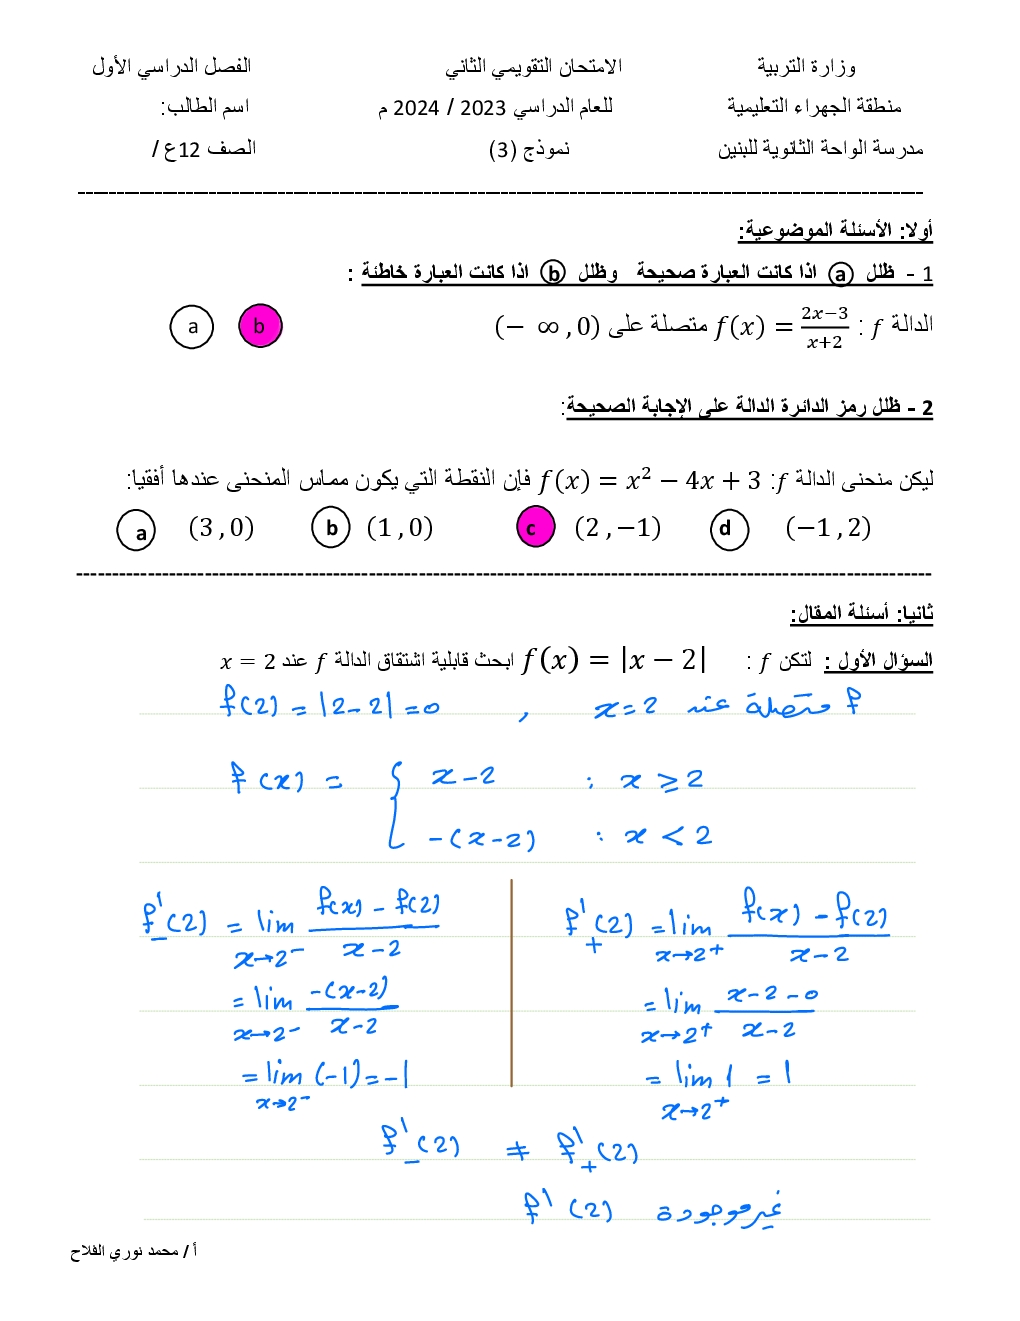 وزارة التربية الامتحان التقويمي الثاني الفصل الدراسي الأول
منطقة الجهراء التعليمية للعام الدراسي 2023 / 2024 م اسم الطالب:
مدرسة الواحة الثانوية للبنين نموذج (3) الصف 12ع /
أولا: الأسئلة الموضوعية:
1 - ظلل (a) اذا كانت العبارة صحيحة وظلل (b) اذا كانت العبارة خاطئة :
الدالة f : f(x) = (2x−3)/(x+2) متصلة على (− ∞ , 0) b a
2 - ظلل رمز الدائرة الدالة على الإجابة الصحيحة:
ليكن منحنى الدالة f: f(x) = x² − 4x + 3 فإن النقطة التي يكون مماس المنحنى عندها أفقيا:
a (3 , 0) b (1 , 0) c (2 , −1) d (−1 , 2)
ثانيا: أسئلة المقال:
السؤال الأول : لتكن f : f(x) = |x − 2| ابحث قابلية اشتقاق الدالة f عند x = 2
f(2) = |2-2| = 0 , f متصلة عند x=2
f(x) = { x-2 : x ≥ 2
-(x-2) : x < 2
f'₋(2) = lim x→2⁻ (f(x) - f(2))/(x-2) f'₊(2) = lim x→2⁺ (f(x) - f(2))/(x-2)
= lim x→2⁻ (-(x-2))/(x-2) = lim x→2⁺ (x-2-0)/(x-2)
= lim x→2⁻ (-1) = -1 = lim x→2⁺ 1 = 1
f'₋(2) ≠ f'₊(2)
f'(2) غير موجودة
أ / محمد نوري الفلاح